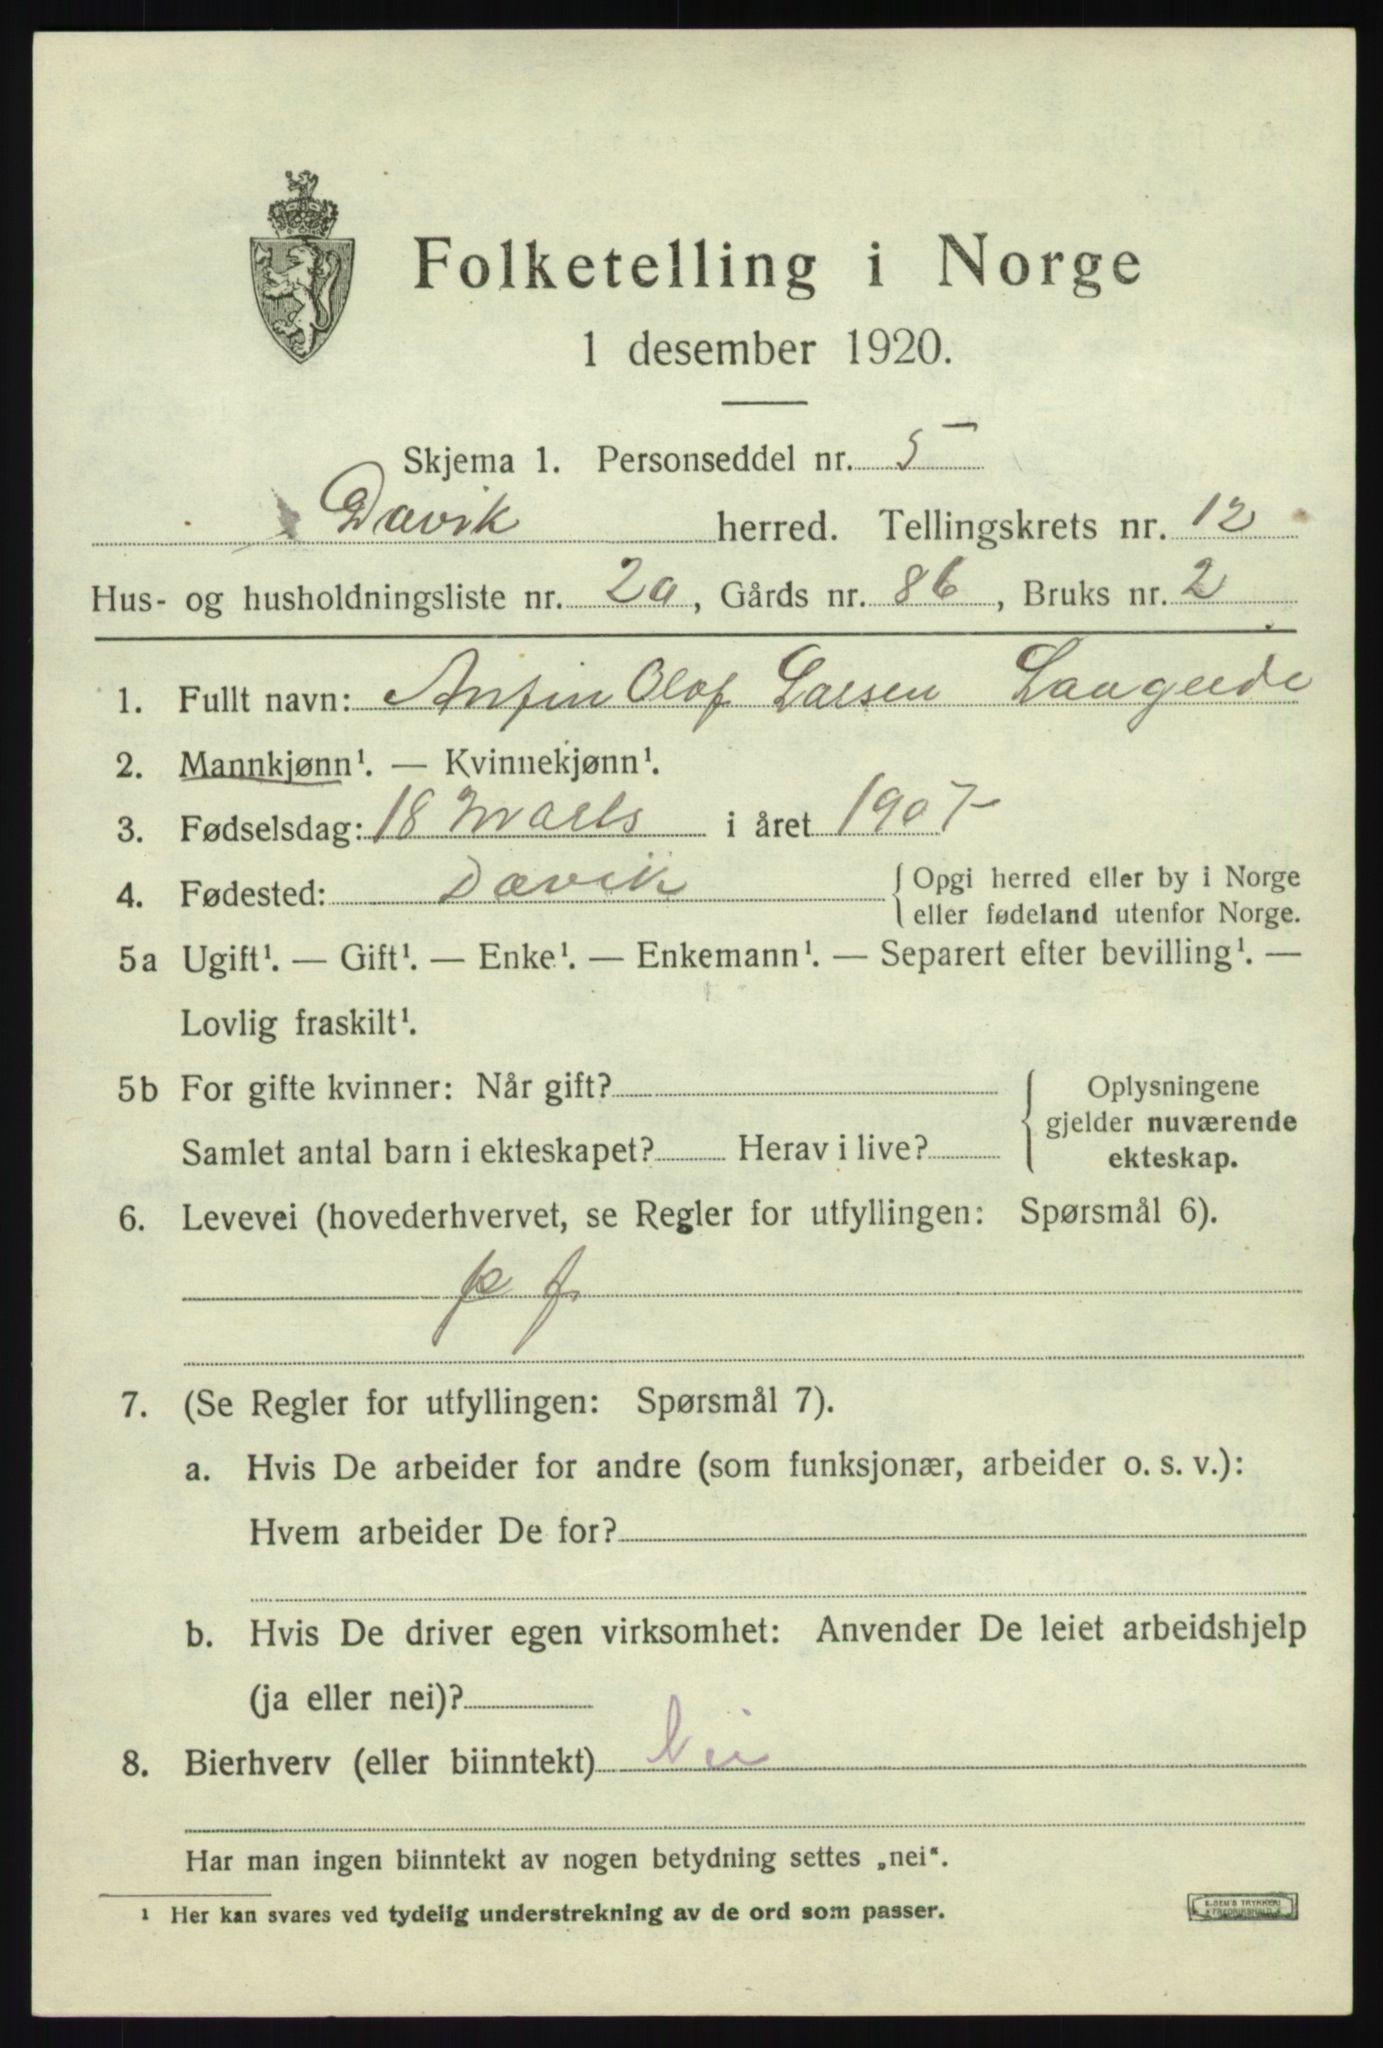 Folketelling i Norge
1 desember 1920.
Skjema 1. Personseddel nr. 5
Davik herred. Tellingskrets nr. 12
Hus- og husholdningsliste nr. 20, Gårds nr. 86, Bruks nr. 2
1. Fullt navn: Anfin Olaf Larsen
2. Mannkjønn¹. — Kvinnekjønn¹.
3. Fødselsdag: 18 Marts i året 1907
4. Fødested: Davik { Opgi herred eller by i Norge
eller fødeland utenfor Norge.
5a Ugift¹. — Gift¹. — Enke¹. — Enkemann¹. — Separert efter bevilling¹. —
Lovlig fraskilt¹.
5b For gifte kvinner: Når gift? { Oplysningene
gjelder nuværende
Samlet antal barn i ekteskapet? Herav i live? ekteskap.
6. Levevei (hovederhvervet, se Regler for utfyllingen: Spørsmål 6).
p f
7. (Se Regler for utfyllingen: Spørsmål 7).
a. Hvis De arbeider for andre (som funksjonær, arbeider o. s. v.):
Hvem arbeider De for?
b. Hvis De driver egen virksomhet: Anvender De leiet arbeidshjelp
(ja eller nei)?
8. Bierhverv (eller biinntekt) Nei
Har man ingen biinntekt av nogen betydning settes „nei“.
¹ Her kan svares ved tydelig understrekning av de ord som passer.